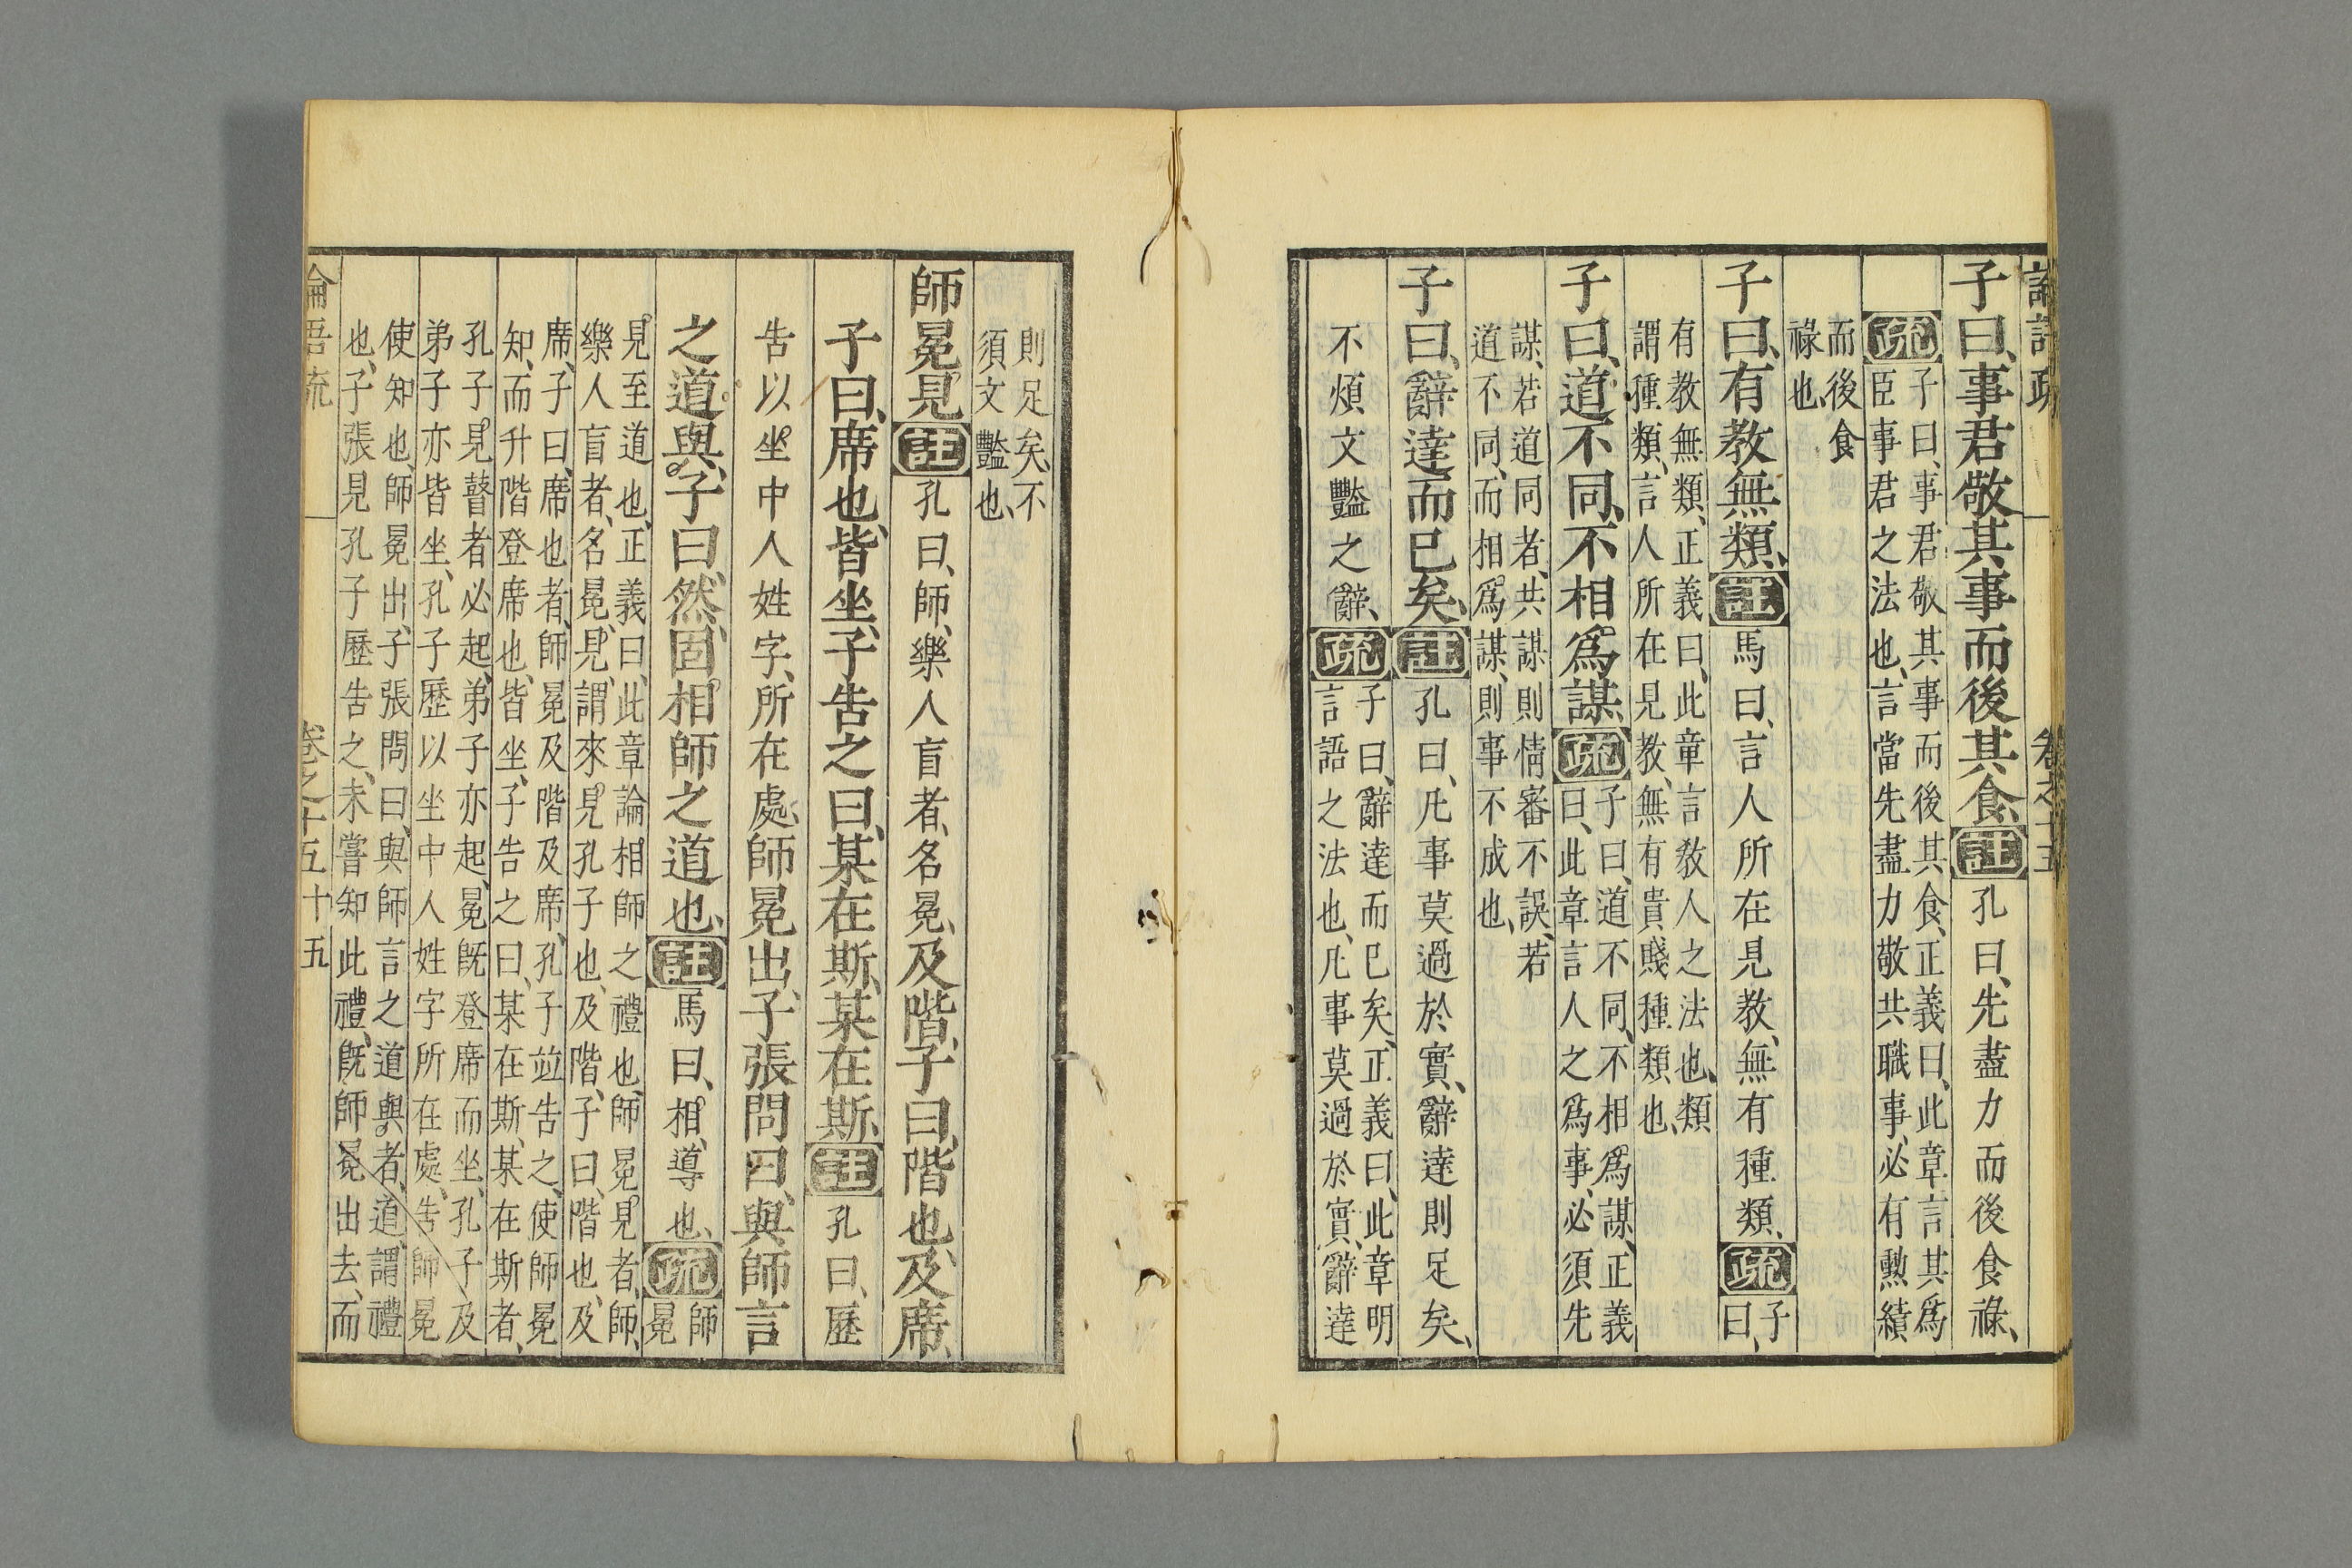 論語疏 卷之十五
子曰、事君敬其事而後其食、註孔曰、先盡力而後食祿、
疏子曰、事君敬其事而後其食、正義曰、此章言其爲
臣事君之法也、言當先盡力敬共職事、必有勲績、
而後食
祿也、
子曰、有教無類、註馬曰、言人所在見教、無有種類、疏子
曰、
有教無類、正義曰、此章言敎人之法也、類
謂種類、言人所在見教、無有貴賤種類也、
子曰、道不同、不相爲謀、疏子曰、道不同、不相爲謀、正義
曰、此章言人之爲事、必須先
謀、若道同者、共謀則情審不誤、若
道不同、而相爲謀、則事不成也、
子曰、辭達而已矣、註孔曰、凡事莫過於實、辭達則足矣、
不煩文豔之辭、疏子曰、辭達而已矣、正義曰、此章明
言語之法也、凡事莫過於實、辭達
則足矣、不
須文豔也、
師冕見、註孔曰、師、樂人盲者、名冕、及階、子曰、階也、及席、
子曰、席也、皆坐、子告之曰、某在斯、某在斯、註孔曰、歷
告以坐中人姓字、所在處、師冕出、子張問曰、與師言
之道與、子曰、然、固相師之道也、註馬曰、相、導也、疏師
冕
見至道也、正義曰、此章論相師之禮也、師冕見者、師、
樂人盲者、名冕、見、謂來見孔子也、及階、子曰、階也、及
席、子曰、席也者、師冕及階及席、孔子竝告之、使師冕
知、而升階登席也、皆坐、子告之曰、某在斯、某在斯者、
孔子見瞽者必起、弟子亦起、冕旣登席而坐、孔子及
弟子亦皆坐、孔子歷以坐中人姓字所在處、告師冕
使知也、師冕出、子張問曰、與師言之道與者、道、謂禮
也、子張見孔子歷告之、未嘗知此禮、旣師冕出去、而
論吾疏 卷之十五 十五